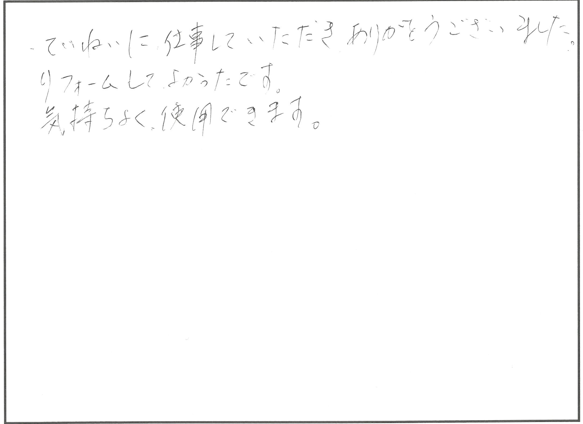 ・ていねいに仕事していただきありがとうございました。
リフォームしてよかったです。
気持ちよく使用できます。